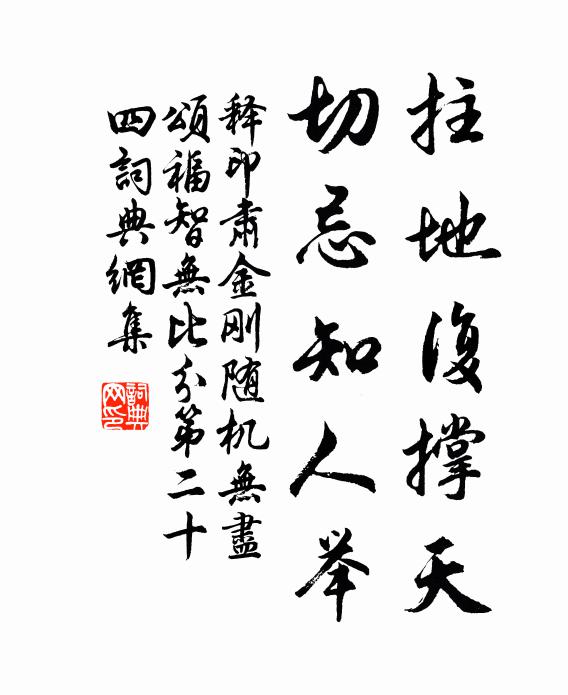 拄地復撐天
切忌知人举
释印肃金刚随机無盡
頌福智無比分第二十
四詞典網集
詞典网印